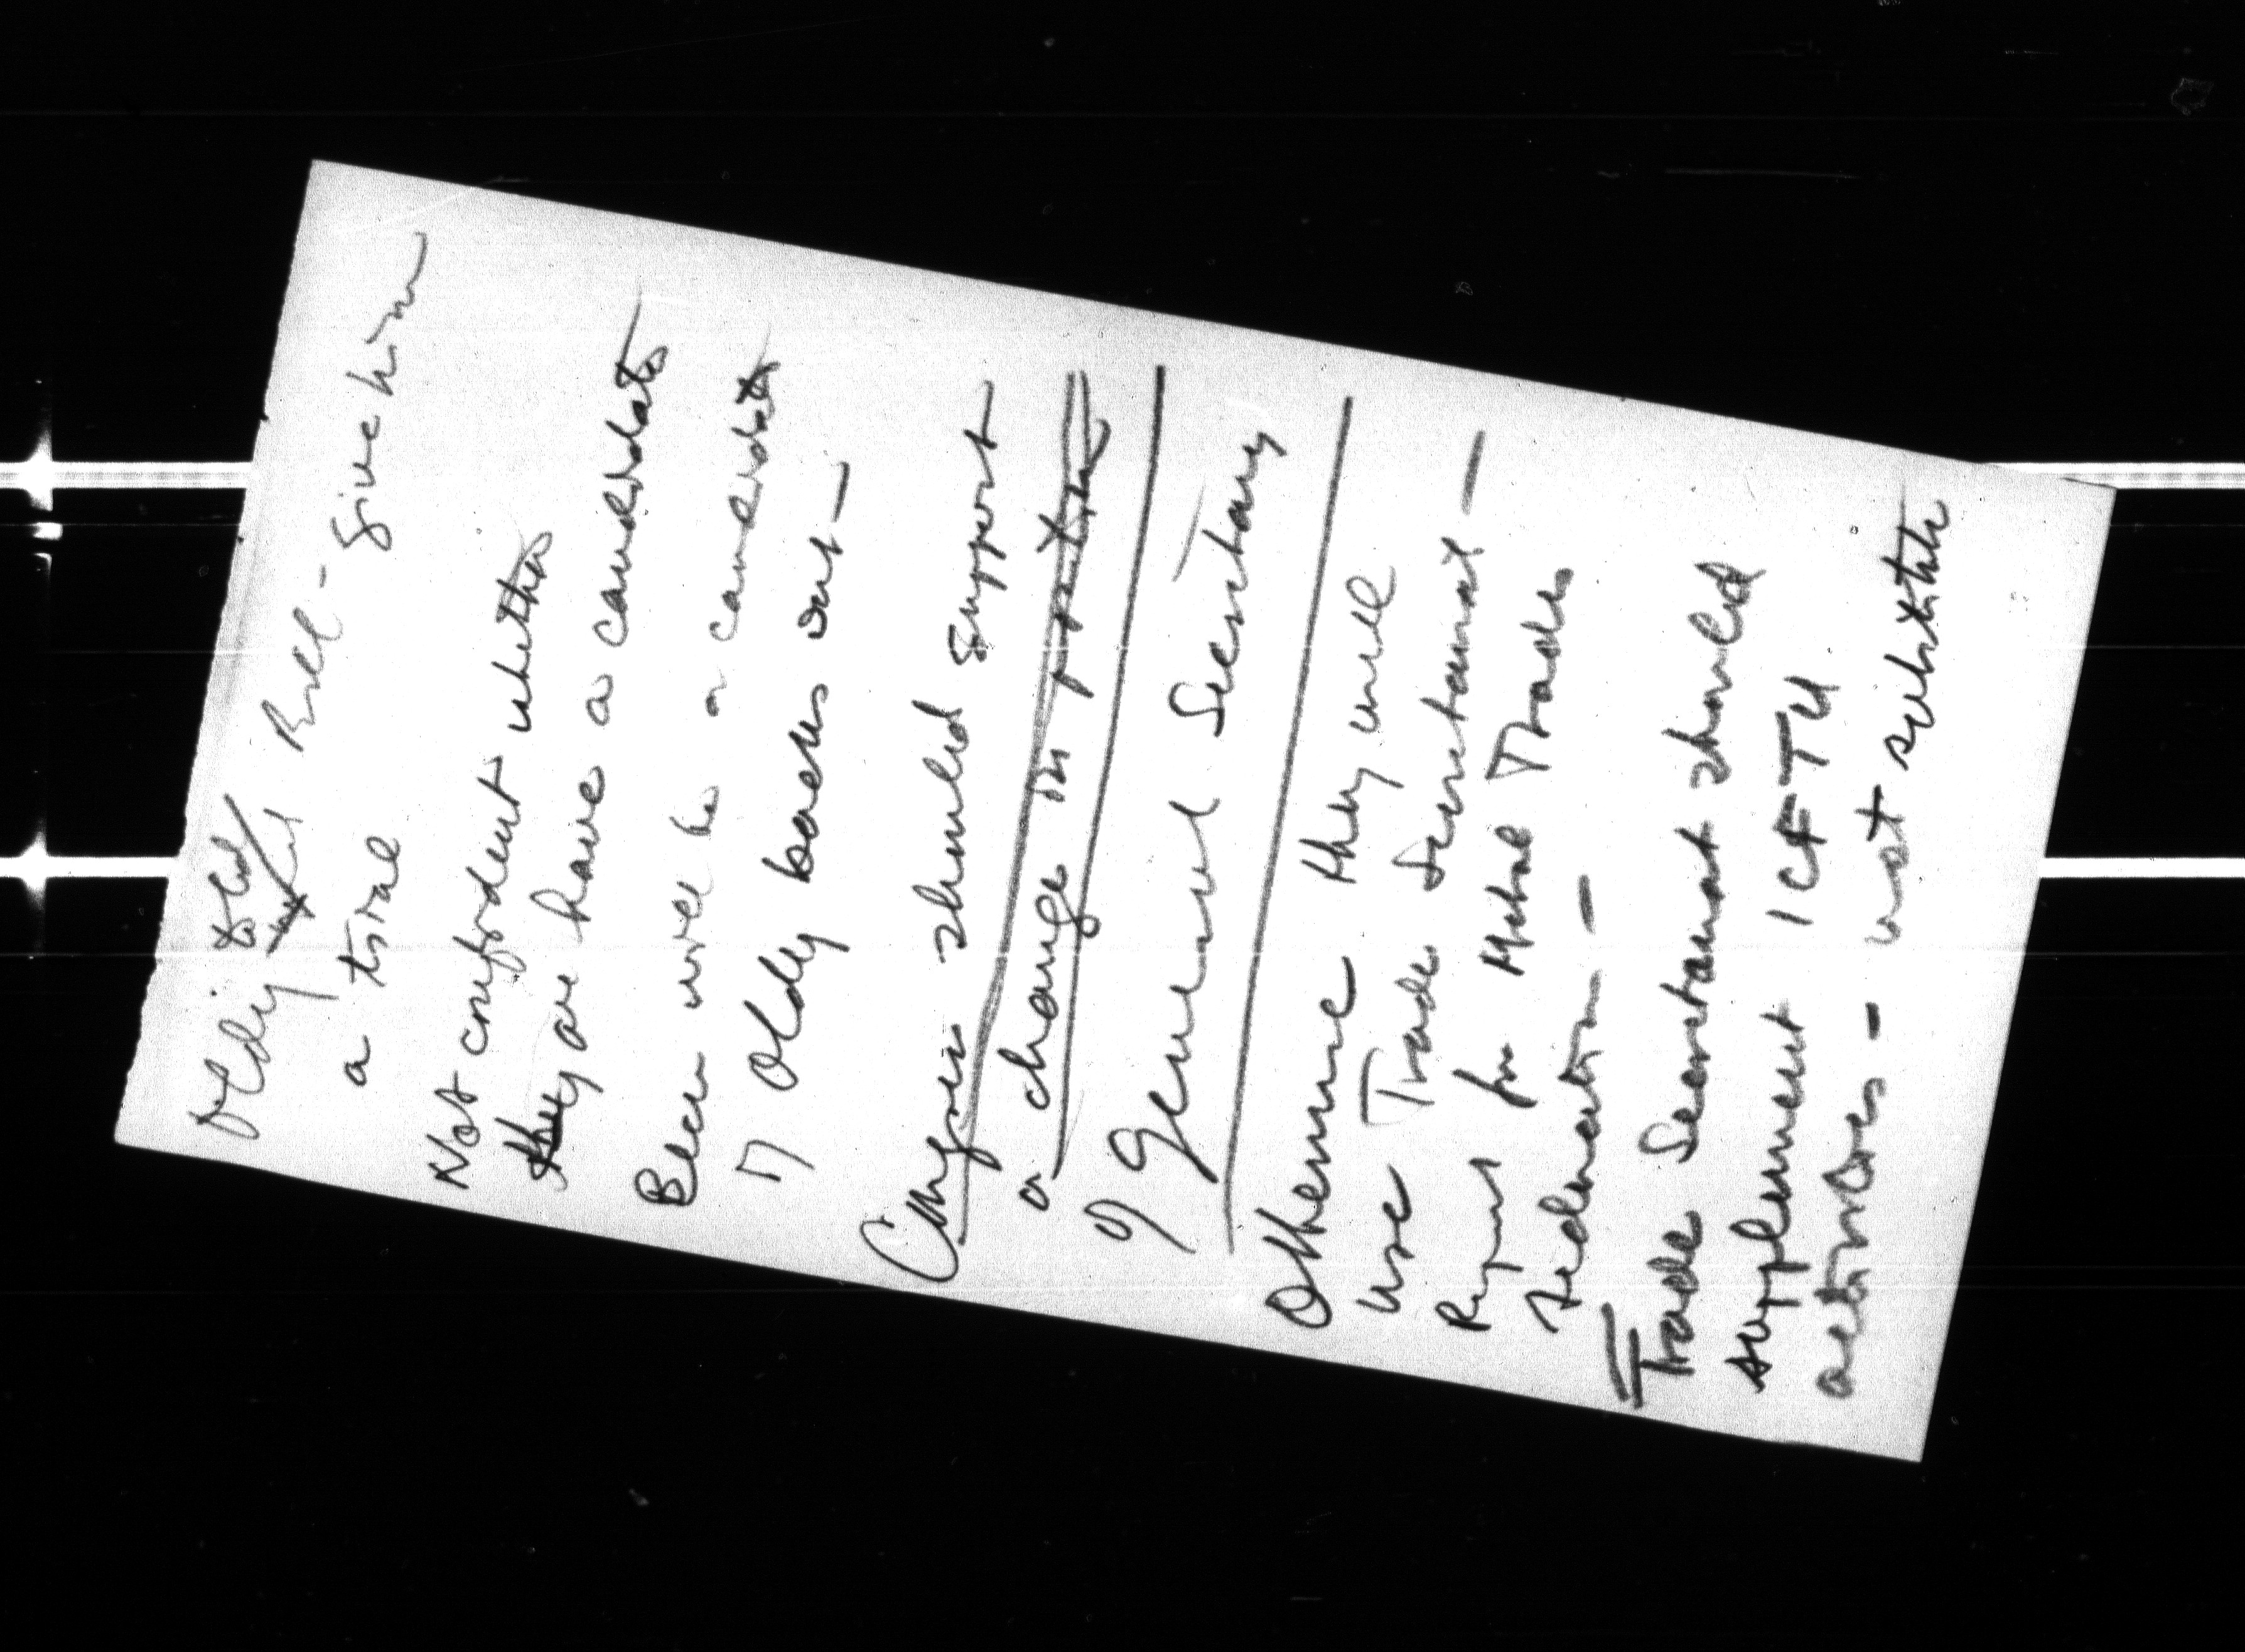 Oldy told
Bill - give him
a trial
Not confident whether
they are have a candidate
Becu will be a candidate
if Oldy backs out -
Congress should support
a change in
of General Secretary
Otherwise they will
use Trade Secretariat -
for Metal Trades
Trade Secretariat should
supplement ICFTU
activities - not substitute